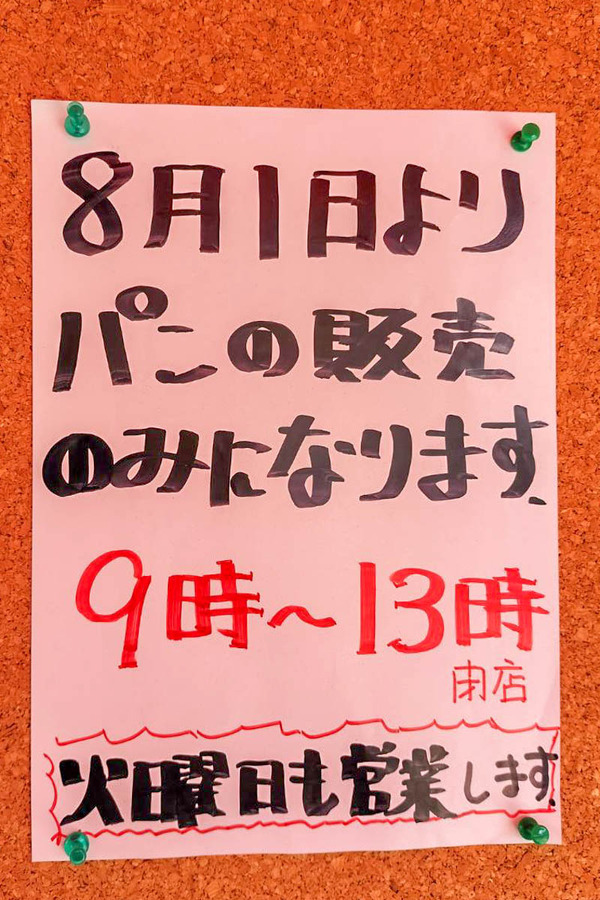 8月1日より
パンの販売
のみになります.
9時～13時
閉店
火曜日も営業します.